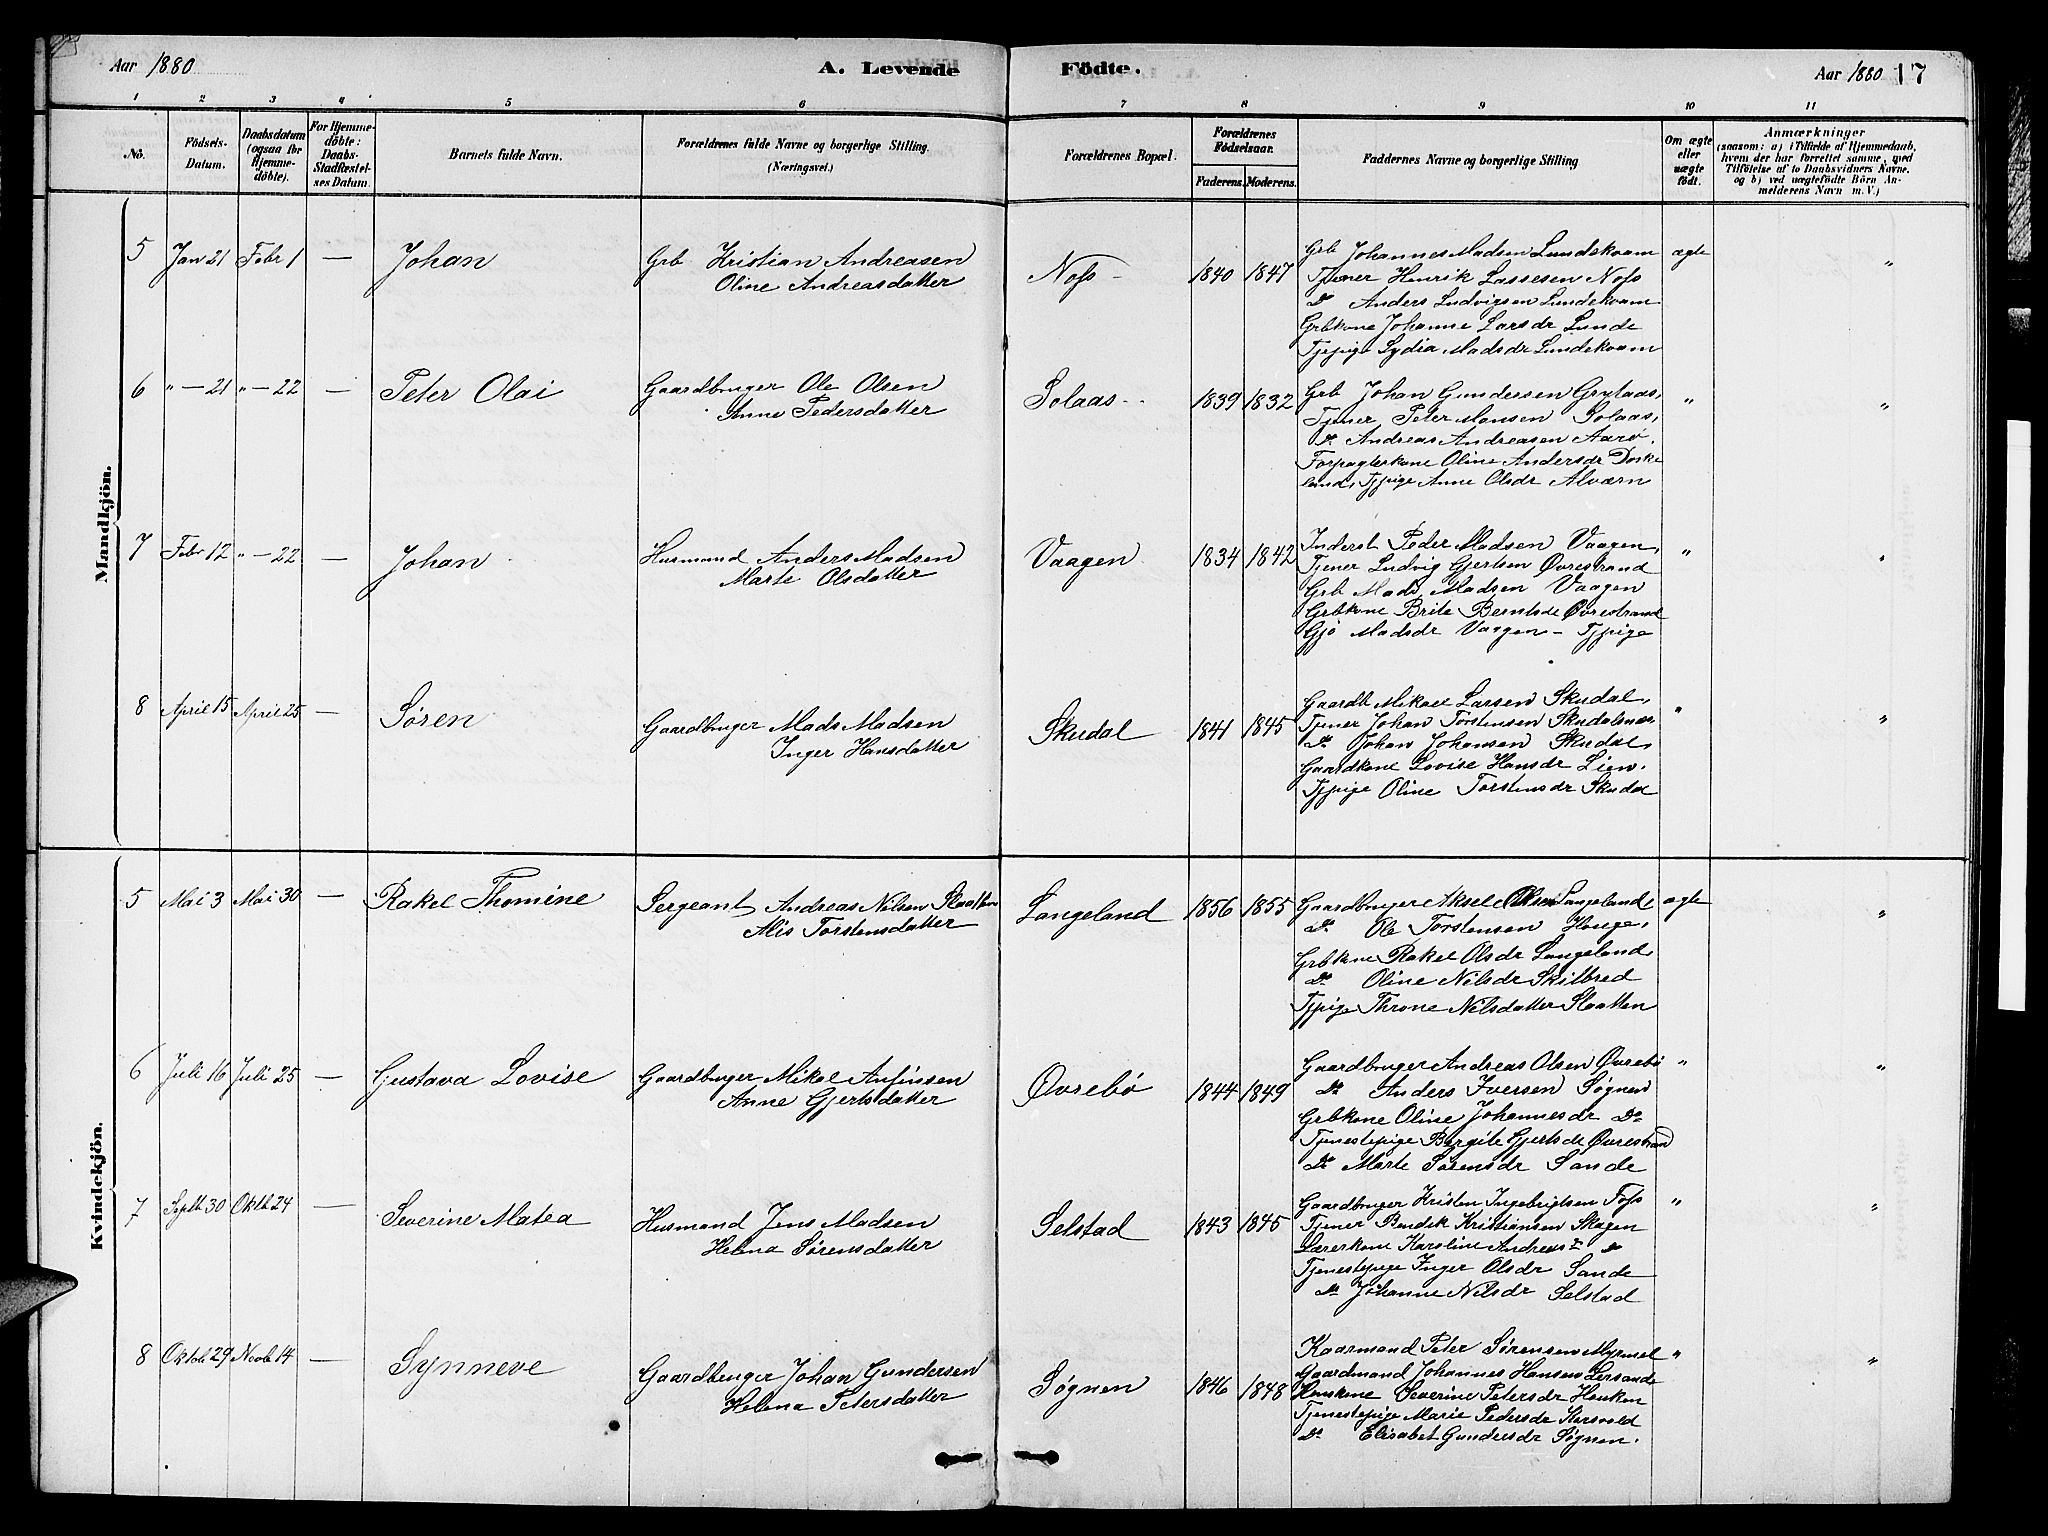 Aar 1880
A. Levende Födte.
Aar 1880
17
1 2 3 4 5 6 7 8 9 10 11
No.
Födsels-
Datum.
Daabsdatum
(ogsaa for
Hjemme-
döbte).
For Hjemme-
döbte:
Daabs-
Stadfæstel-
ses Datum.
Barnets fulde Navn.
Forældrenes fulde Navne og borgerlige Stilling.
(Næringsvei.)
Forældrenes Bopæl.
Forældrenes
Födselsaar.
Faderens. Moderens.
Faddernes Navne og borgerlige Stilling
Om ægte
eller
uægte
födt.
Anmærkninger
(saasom: a) i Tilfælde af Hjemmedaab,
hvem der har forrettet samme, med
Tilföielse af to Daabsvidners Navne.
og b) ved uægtefödte Börn An-
melderens Navn m. V.)
Mandkjön.
5 Jan 21 Febr 1 — Johan
Grb Kristian Andreasen
Oline Andreasdatter
Nofs - 1840 1847
Grb Johannes Madsen Lundekvam
Tjener Henrik Lassesen Nofs
Do Anders Ludvigsen Lundekvam
Grbkone Johanne Larsdr Lunde
Tjepige Lydia Madsdr Lundekvam
ægte "
6 " — 21 " — 22 — Peter Olai
Gaardbruger Ole Olsen
Anne Pedersdatter
Solaas - 1839 1832
Grb Johan Gundersen Grytaas,
Tjener Peter Monsen Solaas,
Do Andreas Andreasen Aarö,
Forpagterkone Oline Andersdr Doske
land, Tjpige Anne Olsdr Alværn
" "
7 Febr 12 " — 22 — Johan
Husmand Anders Madsen
Marte Olsdatter
Vaagen 1834 1842
Inderst Peder Madsen Vaagen,
Tjener Ludvig Gjertsen Øvrestrand
Grb Mads Madsen Vaagen
Grbkone Brite Berntsdr Øvrestrand
Gjö Madsdr Vaagen - Tjpige
" "
8 April 15 April 25 — Søren
Gaardbruger Mads Madsen
Inger Hansdatter
Skudal 1841 1845
Gaardb Mikael Larsen Skudal,
Tjener Johan Torstensen Skudalsnes
Do Johan Johansen Skudal,
Gaardkone Lovise Hansdr Lien,
Tjpige Oline Torstensdr Skudal
" "
Kvindekjön.
5 Mai 3 Mai 30 — Rakel Thomine
Sergeant Andreas Nilsen Slaatten
Alis Torstensdatter
Langeland 1856 1855
Gaardbruger Aksel Olsen Langeland
Do Ole Torstensen Hauge,
Grbkone Rakel Olsdr Langeland,
Do Oline Nilsdr Skilbred
Tjpige Throne Nilsdatter Slaatten
ægte "
6 Juli 16 Juli 25 — Gustava Lovise
Gaardbruger Mikal Anfinsen
Anne Gjertsdatter
Øvrebö 1844 1849
Gaardbruger Andreas Olsen Øvrebö
Do Anders Iversen Søgnen
Grbkone Oline Johannesdr Do
Tjenestepige Bergite Gjertsdr Øvrestrand
Do Marte Sørensdr Sande
" "
7 Septb 30 Oktb 24 — Severine Matea
Husmand Jens Madsen
Helena Sørensdatter
Selstad 1843 1845
Gaardbruger Kristen Ingebrigtsen Fofs
Tjener Bendik Kristiansen Skagen
Lærerkone Karoline Andreasdr Do
Tjenestepige Inger Olsdr Sande
Do Johanne Nilsdr Selstad
" "
8 Oktob 29 Novb 14 — Synneve
Gaardbruger Johan Gundersen
Helena Petersdatter
Søgnen 1846 1848
Kaarmand Peter Sørensen Myrmel
Gaardmand Johannes Hansen Lersande
Huskone Severine Petersdr Hauken
Tjenestepige Marie Pedersdr Storsvold
Do Elisabet Gundersdr Søgnen.
" "